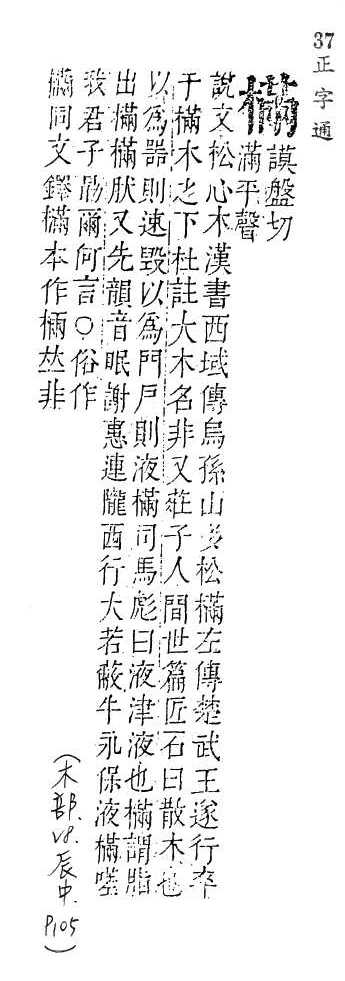 37 正字通
樠
謨盤切
滿平聲
說文松心木漢書西域傳烏孫山多松樠左傳楚武王遂行卒
于樠木之下杜註大木名非又莊子人間世篇匠石曰散木也
以爲器則速毀以爲門戶則液樠司馬彪曰液津液也樠謂脂
出樠樠肰又先韻音眠謝惠連隴西行大若蔽牛永保液樠嗟
我君子勗爾何言○俗作
樠同文鐸樠本作𠀤非
(木部、v8.辰中、P105)